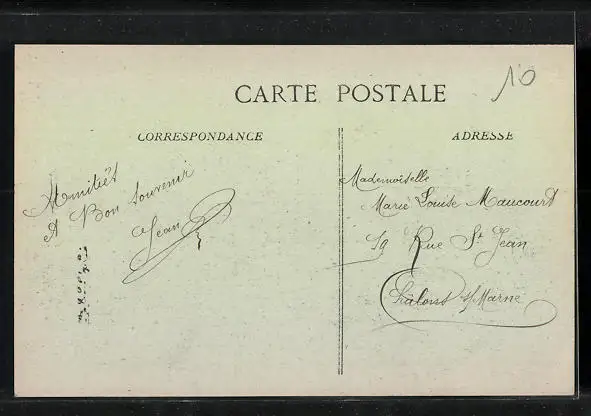 10
CARTE POSTALE
CORRESPONDANCE
ADRESSE
Amitiés
et Bon Souvenir
Jean
Mademoiselle
Marie Louise Maucourt
19 Rue St Jean
Châlons s/Marne